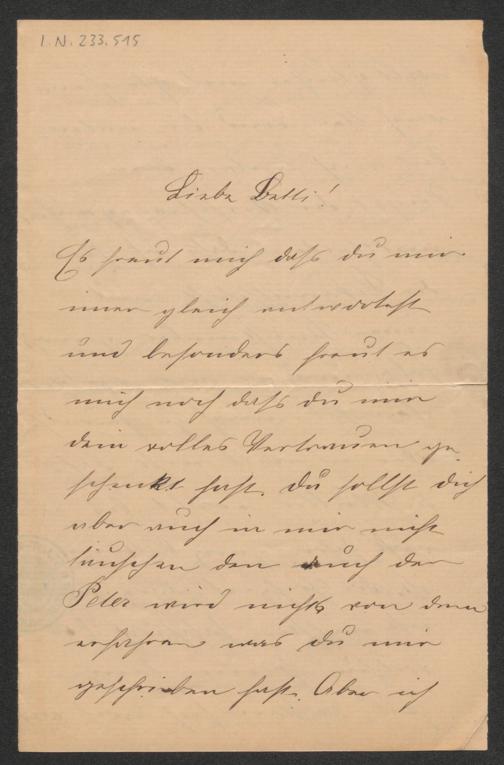 I.N. 233.515
Liebe Betti!
Es freut mich daſs du mir
imer gleich antwortest
und besonders freut es
mich noch daſs du mir
dein volles Vertrauen ge
schenkt hast. du sollst dich
aber auch in mir nicht
täuschen den auch der
Peter wird nichts von dem
erfahren was du mir
geschrieben hast. Aber ich